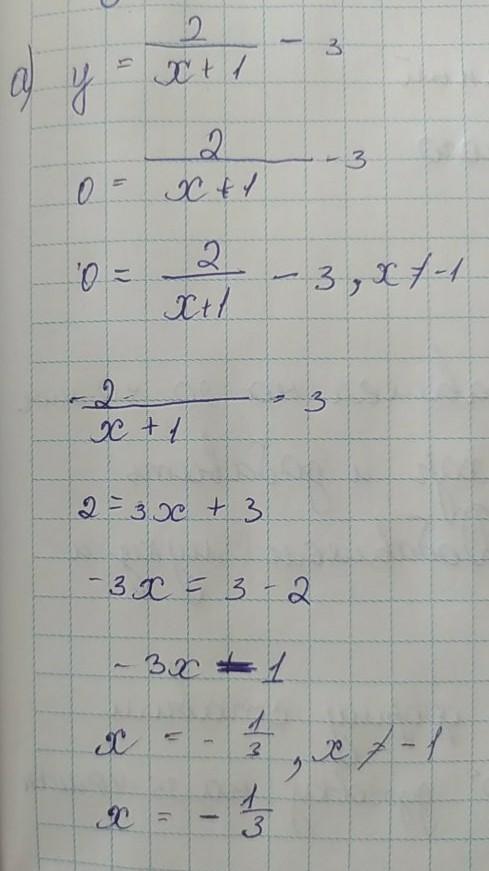 а) y = 2/(x + 1) - 3
0 = 2/(x + 1) - 3
0 = 2/(x+1) - 3, x ≠ -1
-2/(x + 1) = 3
2 = 3x + 3
-3x = 3 - 2
-3x = 1
x = - 1/3, x ≠ -1
x = - 1/3